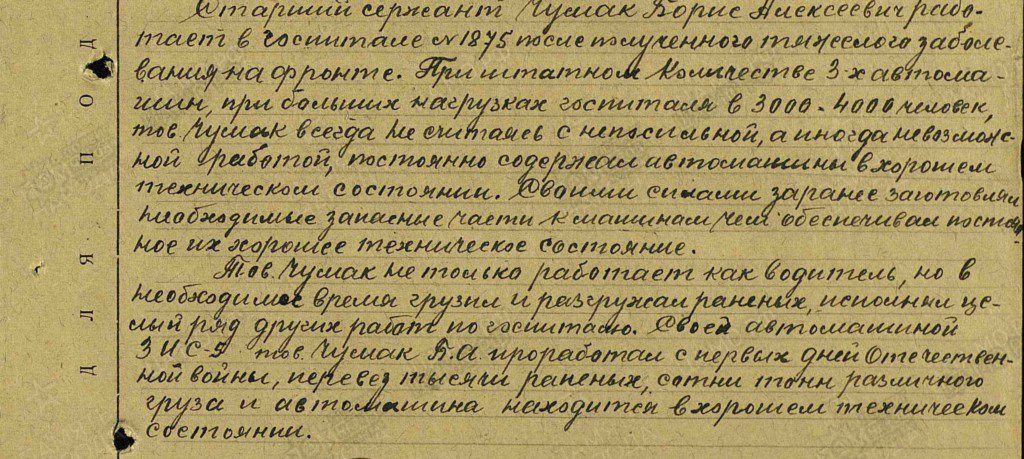 Старший сержант Чумак Борис Алексеевич рабо-
тает в госпитале №1875 после полученного тяжелого заболе-
вания на фронте. При штатном количестве 3-х автома-
шин, при больших нагрузках госпиталя в 3000-4000 человек,
тов. Чумак всегда не считаясь с непосильной, а иногда невозмож-
ной работой, постоянно содержал автомашины в хорошем
техническом состоянии. Своими силами заранее заготовлял
необходимые запасные части к машинам чем обеспечивал постоян
ное их хорошее техническое состояние.
Тов. Чумак не только работает как водитель, но в
необходимое время грузил и разгружал раненых, исполнял це-
лый ряд других работ по госпиталю. Своей автомашиной
ЗИС-5 тов. Чумак Б.А. проработал с первых дней Отечествен-
ной войны, перевез тысячи раненых, сотни тонн различного
груза и автомашина находится в хорошем техническом
состоянии.
ДЛЯ ПОД